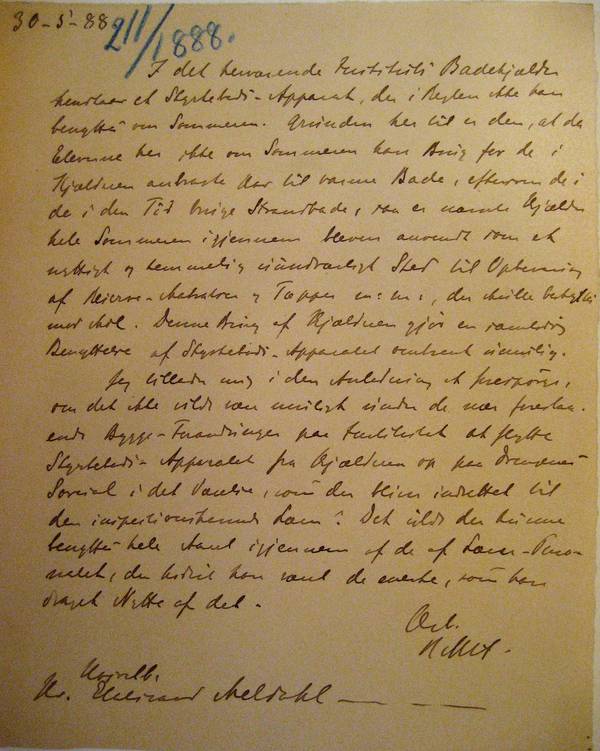 30-5-88
211/1888.
I det herværende Instituts Badekjælder
henstaaer et Styrtebads-Apparat, der i Reglen ikke kan
benyttes om Sommeren. Grunden her til er den, at da
Eleverne her ikke om Sommeren have Brug for de i
Kjælderen anbragte Kar til varme Bade, eftersom de i
de i den Tid bruge Strandbade, saa er nævnte Kjælder
hele Sommeren igjennem bleven anvendt som et
nyttigt og temmelig uundværligt Sted til Opbevaring
af Reserve-Madratser og Tæpper m: m:, der skulle beskyttes
mod Møl. Denne Brug af Kjælderen gjør en samtidig
Benyttelse af Styrtebads-Apparatet omtrent umulig.
Jeg tillader mig i den Anledning at forespørge,
om det ikke vilde være muligt under de nær forestaa-
ende Bygge-Forandringer paa Instituttet at flytte
Styrtebads-Apparatet fra Kjælderen op paa Drengenes
Sovesal i det Værelse, som der bliver indrettet til
den inspectionshavende Lærer? Det vilde der kunne
benyttes hele Aaret igjennem af de af Lærer-Perso-
nalet, der hidtil have været de eneste, som have
draget Nytte af det.
Hr. Etatsraad Meldahl